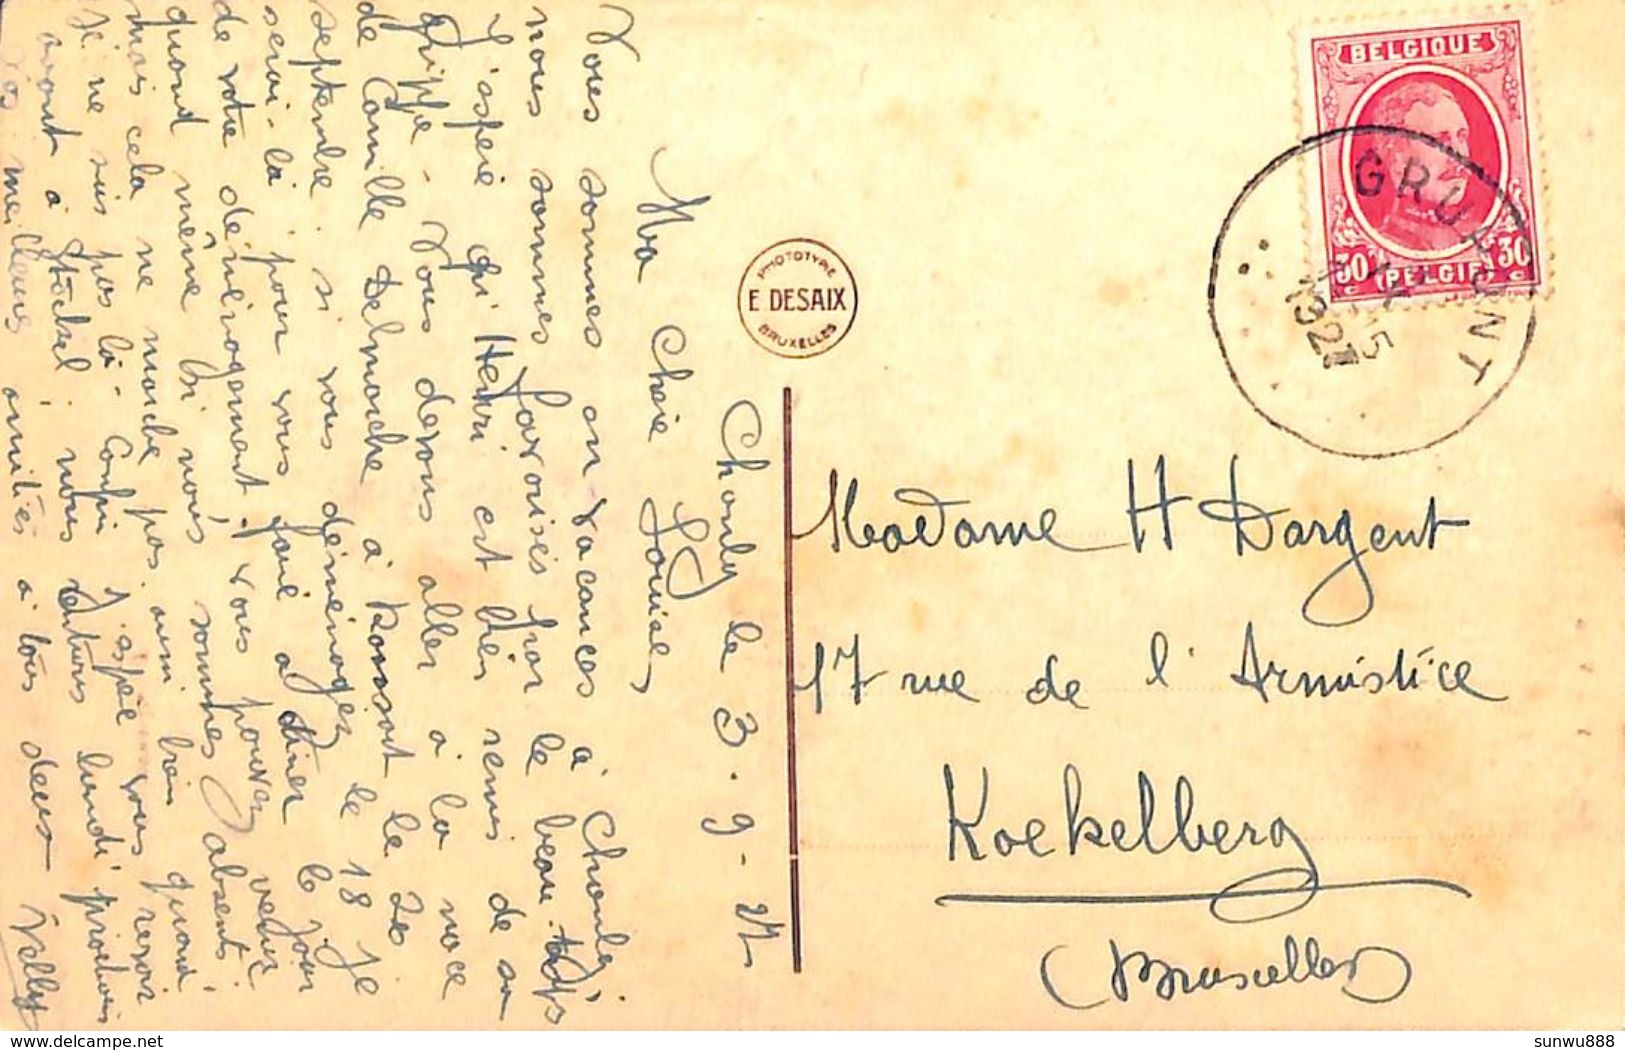 Chanly le 3.9-27
Ma Chère Louise,
Nous sommes en vacances à Chanly
nous sommes favorisés par le beau temps
J'espère qu'Henri est bien remis de sa
grippe - Nous devons aller à la noce
de Camille Delmarche à Ransart le 20
septembre. si vous déménagez le 18 je
serai-là pour vous faire à dîner le jour
de votre déménagement. vous pouvez venir
quand même si nous sommes absents
mais cela ne marche pas aussi bien quand
je ne suis pas là - Enfin j'espère vous revoir
avant à Stockel; nous rentrons lundi prochain
Nos meilleurs amitiés à tous deux Nelly
PHOTOTYPE
E DESAIX
BRUXELLES
BELGIQUE
30 30
BELGIE
GRUPONT
15
1927
Madame H Dargent
17 rue de l'Armistice
Koekelberg
(Bruxelles)
delcampe.net
sunwu888